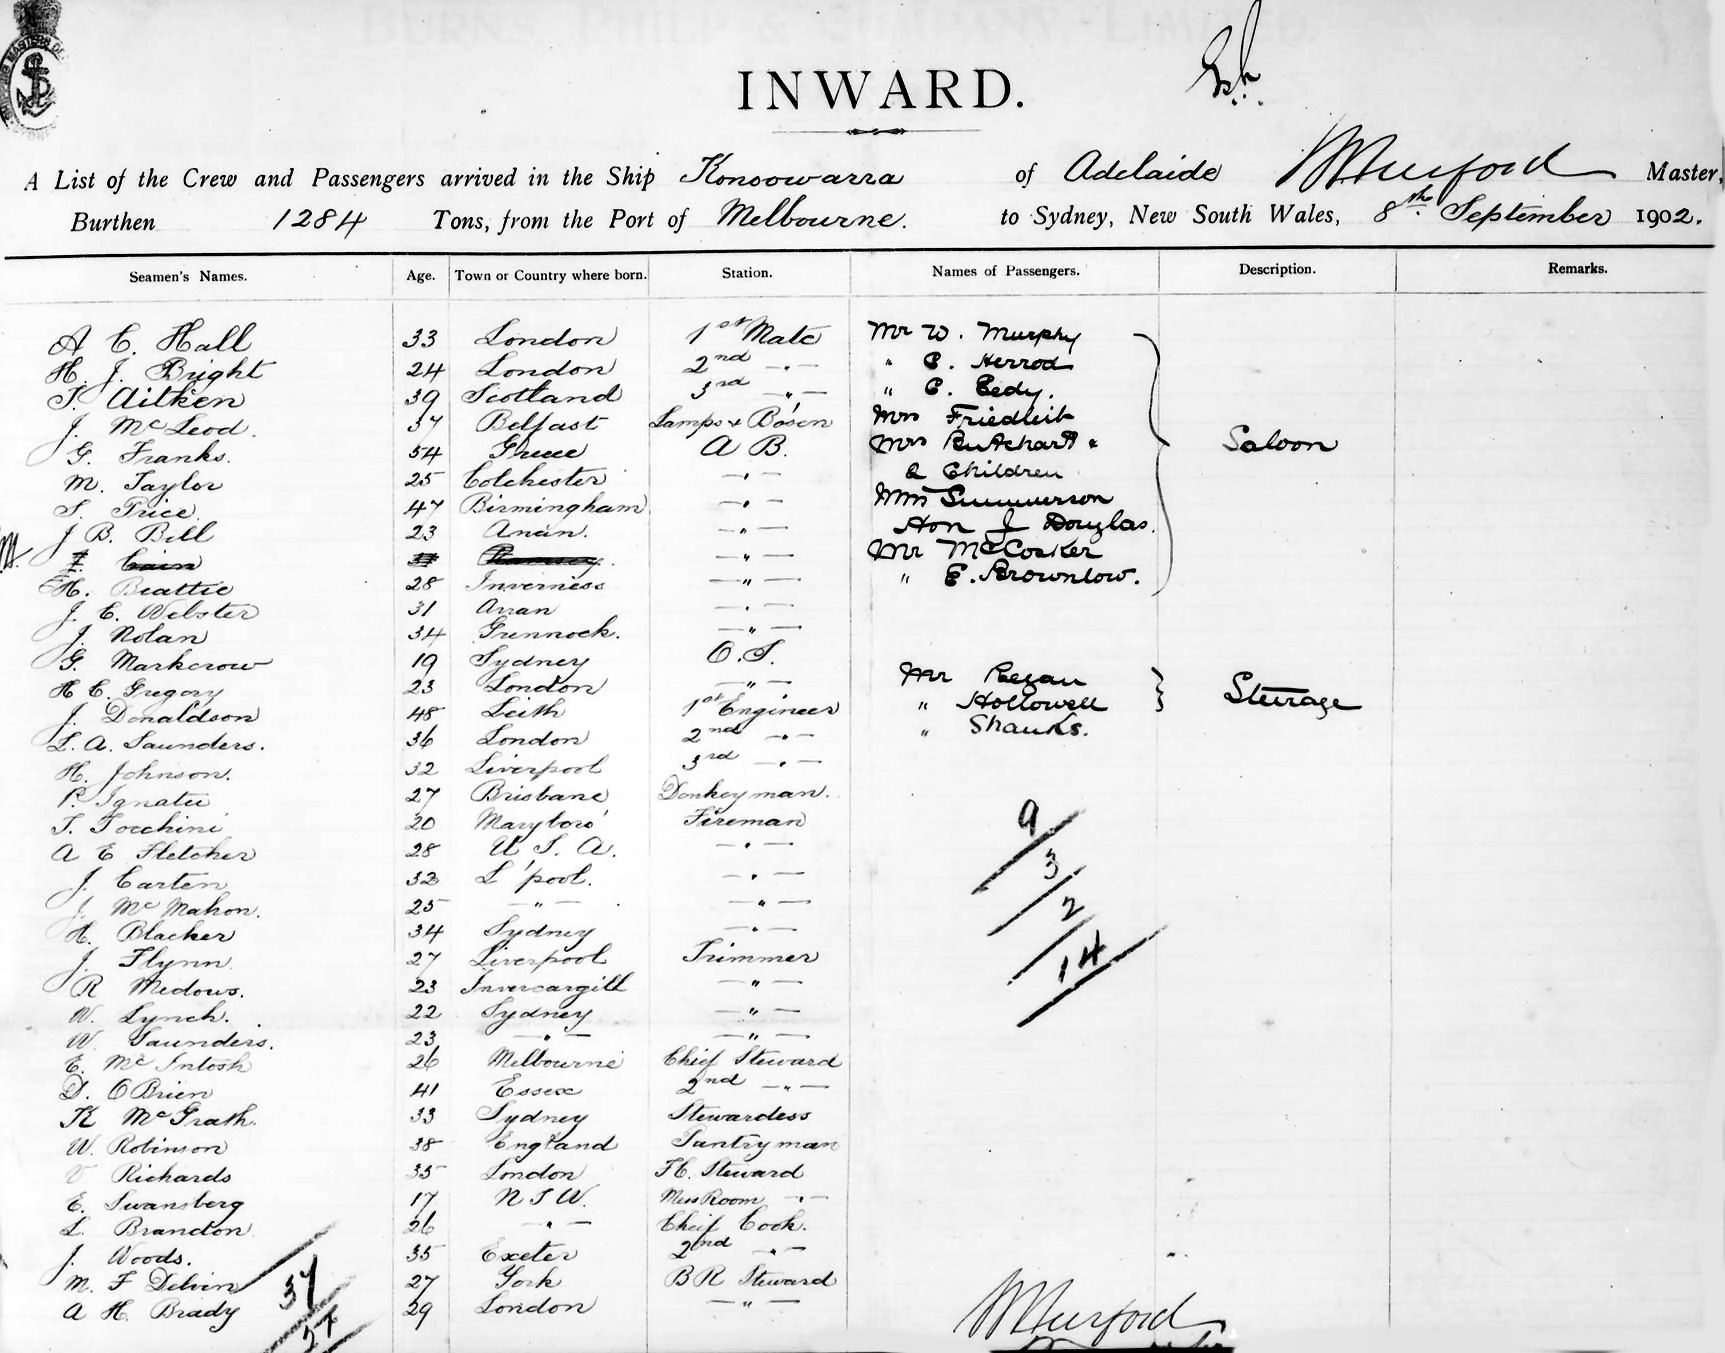 BURNS, PHILP & COMPANY, LIMITED.
INWARD.
A List of the Crew and Passengers arrived in the Ship Konoowarra of Adelaide Master,
Burthen 1284 Tons, from the Port of Melbourne. to Sydney, New South Wales, 8th September 1902.
Seamen's Names. Age. Town or Country where born. Station. Names of Passengers. Description. Remarks.
A E. Hall 33 London 1st Mate Mr W. Murphy
H. J. Bright 24 London 2nd —"— " C. Herrod
T. Aitken 39 Scotland 3rd —"— " C. Eedy.
J. McLeod. 37 Belfast Lamps & Bosen Mrs Friedleib
G. Franks. 54 Greece A B. Mrs Butchart & Saloon
M. Taylor 25 Colchester —"— 2 Children
S. Price. 47 Birmingham —"— Miss Summerson
J B. Bell 23 Anan. —"— Hon J Douglas.
Cain Ramsey. —"— Mr McCosker
H. Beattie 28 Inverness —"— " E. Brownlow.
J. E. Webster 31 Arran —"—
J. Nolan 34 Greenock. —"—
G. Markcrow 19 Sydney O.S.
H E. Gregory 23 London —"— Mr Regan
J. Donaldson 48 Leith 1st Engineer " Hollowell Steerage
L. A. Saunders. 36 London 2nd —"— " Shanks.
H. Johnson. 32 Liverpool 3rd —"—
P. Ignatii 27 Brisbane Donkeyman.
T. Tocchini 20 Maryboro' Fireman 9
A E Fletcher 28 U S. A. —"— 3
J. Carten 32 L'pool. —"—
J. McMahon. 25 —"— —"— 2
H. Blacker 34 Sydney —"—
J. Flynn 27 Liverpool Trimmer 14
R Medows. 23 Invercargill —"—
W. Lynch. 22 Sydney —"—
W. Saunders. 23 —"— —"—
E. McIntosh 26 Melbourne Chief Steward
D. OBrien 41 Essex 2nd —"—
K McGrath. 33 Sydney Stewardess
W. Robinson 38 England Pantryman
Richards 35 London F.C. Steward
E. Swansberg 17 N S W. Mess Room —"—
L. Brandon 26 —"— Cheif Cook.
J. Woods. 35 Exeter 2nd —"—
M. F Delvin 37 27 York B R Steward
A H. Brady 29 London —"—